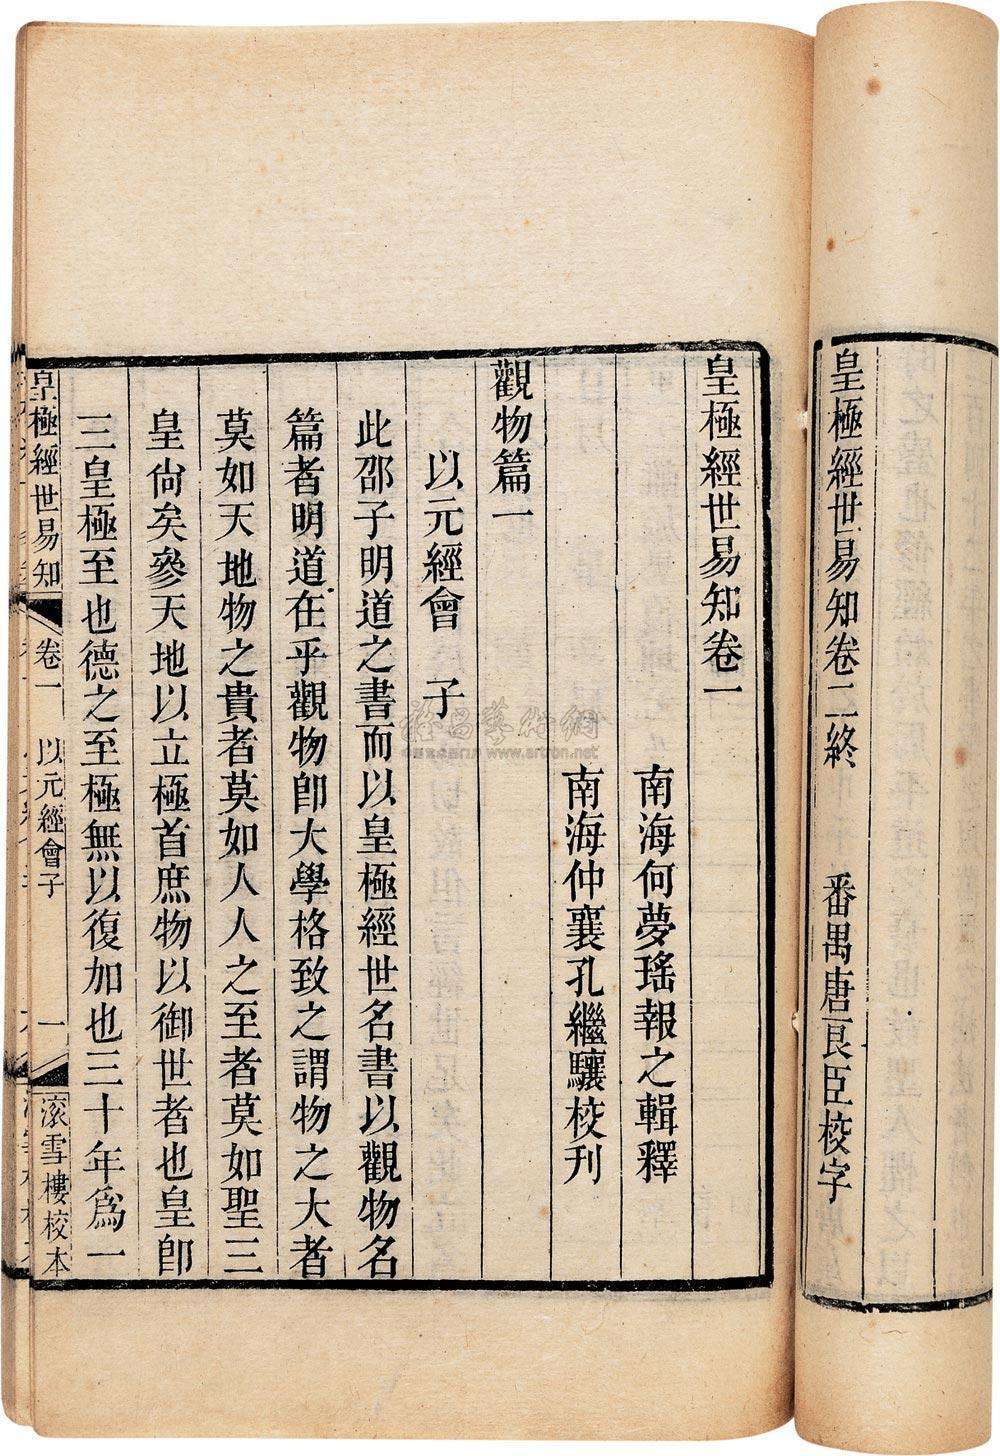 皇極經世易知卷二終 番禺唐良臣校字
皇極經世易知卷一
南海何夢瑤報之輯釋
南海仲襄孔繼驤校刊
觀物篇一
以元經會 子
此邵子明道之書而以皇極經世名書以觀物名
篇者明道在乎觀物卽大學格致之謂物之大者
莫如天地物之貴者莫如人人之至者莫如聖三
皇尙矣參天地以立極首庶物以御世者也皇卽
三皇極至也德之至極無以復加也三十年爲一
皇極經世易知 卷一 以元經會子 一 滚雪樓校本
www.artron.net